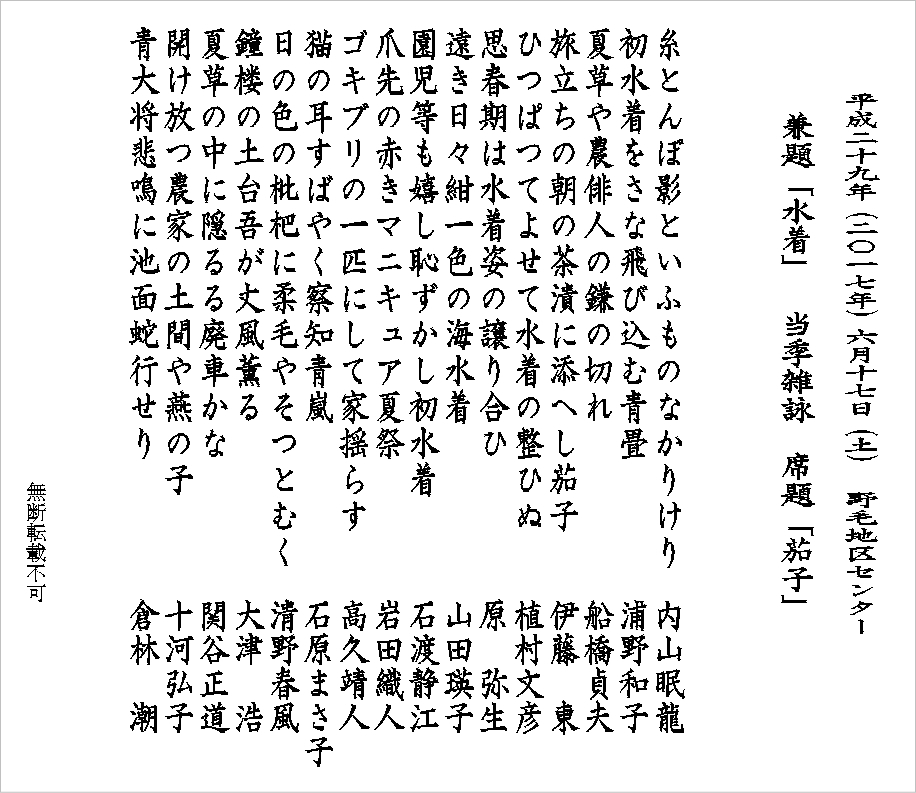 平成二十九年（二〇一七年）六月十七日（土）　野毛地区センター
兼題「水着」　当季雑詠　席題「茄子」
糸とんぼ影といふものなかりけり　内山眠龍
初水着をさな飛び込む青畳　浦野和子
夏草や農俳人の鎌の切れ　船橋貞夫
旅立ちの朝の茶漬に添へし茄子　伊藤　東
ひつぱつてよせて水着の整ひぬ　植村文彦
思春期は水着姿の譲り合ひ　原　弥生
遠き日々紺一色の海水着　山田瑛子
園児等も嬉し恥ずかし初水着　石渡静江
爪先の赤きマニキュア夏祭　岩田織人
ゴキブリの一匹にして家揺らす　高久靖人
猫の耳すばやく察知青嵐　石原まさ子
日の色の枇杷に柔毛やそつとむく　清野春風
鐘楼の土台吾が丈風薫る　大津　浩
夏草の中に隠るる廃車かな　関谷正道
開け放つ農家の土間や燕の子　十河弘子
青大将悲鳴に池面蛇行せり　倉林　潮
無断転載不可